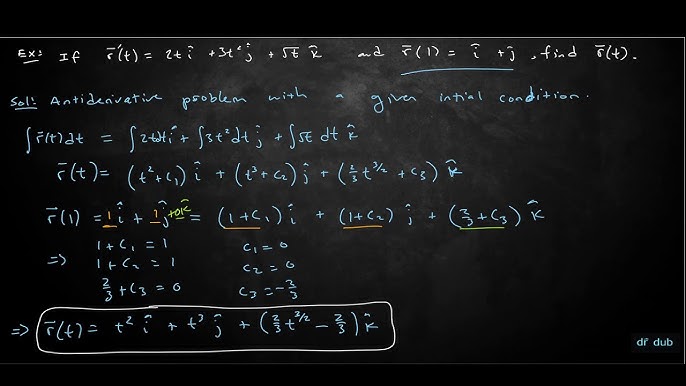 Ex: If r⃗'(t) = 2t î + 3t² ĵ + √t k̂ and r⃗(1) = î + ĵ, find r⃗(t).
Sol: Antiderivative problem with a given intial condition.
∫r⃗(t)dt = ∫2tdt î + ∫3t²dt ĵ + ∫√t dt k̂
r⃗(t) = (t² + C₁) î + (t³ + C₂) ĵ + (2/3 t^(3/2) + C₃) k̂
r⃗(1) = 1 î + 1 ĵ + 0k̂ = (1 + C₁) î + (1 + C₂) ĵ + (2/3 + C₃) k̂
⇒ 1 + C₁ = 1 C₁ = 0
1 + C₂ = 1 C₂ = 0
2/3 + C₃ = 0 C₃ = -2/3
⇒ r⃗(t) = t² î + t³ ĵ + (2/3 t^(3/2) - 2/3) k̂
dr̂ dub